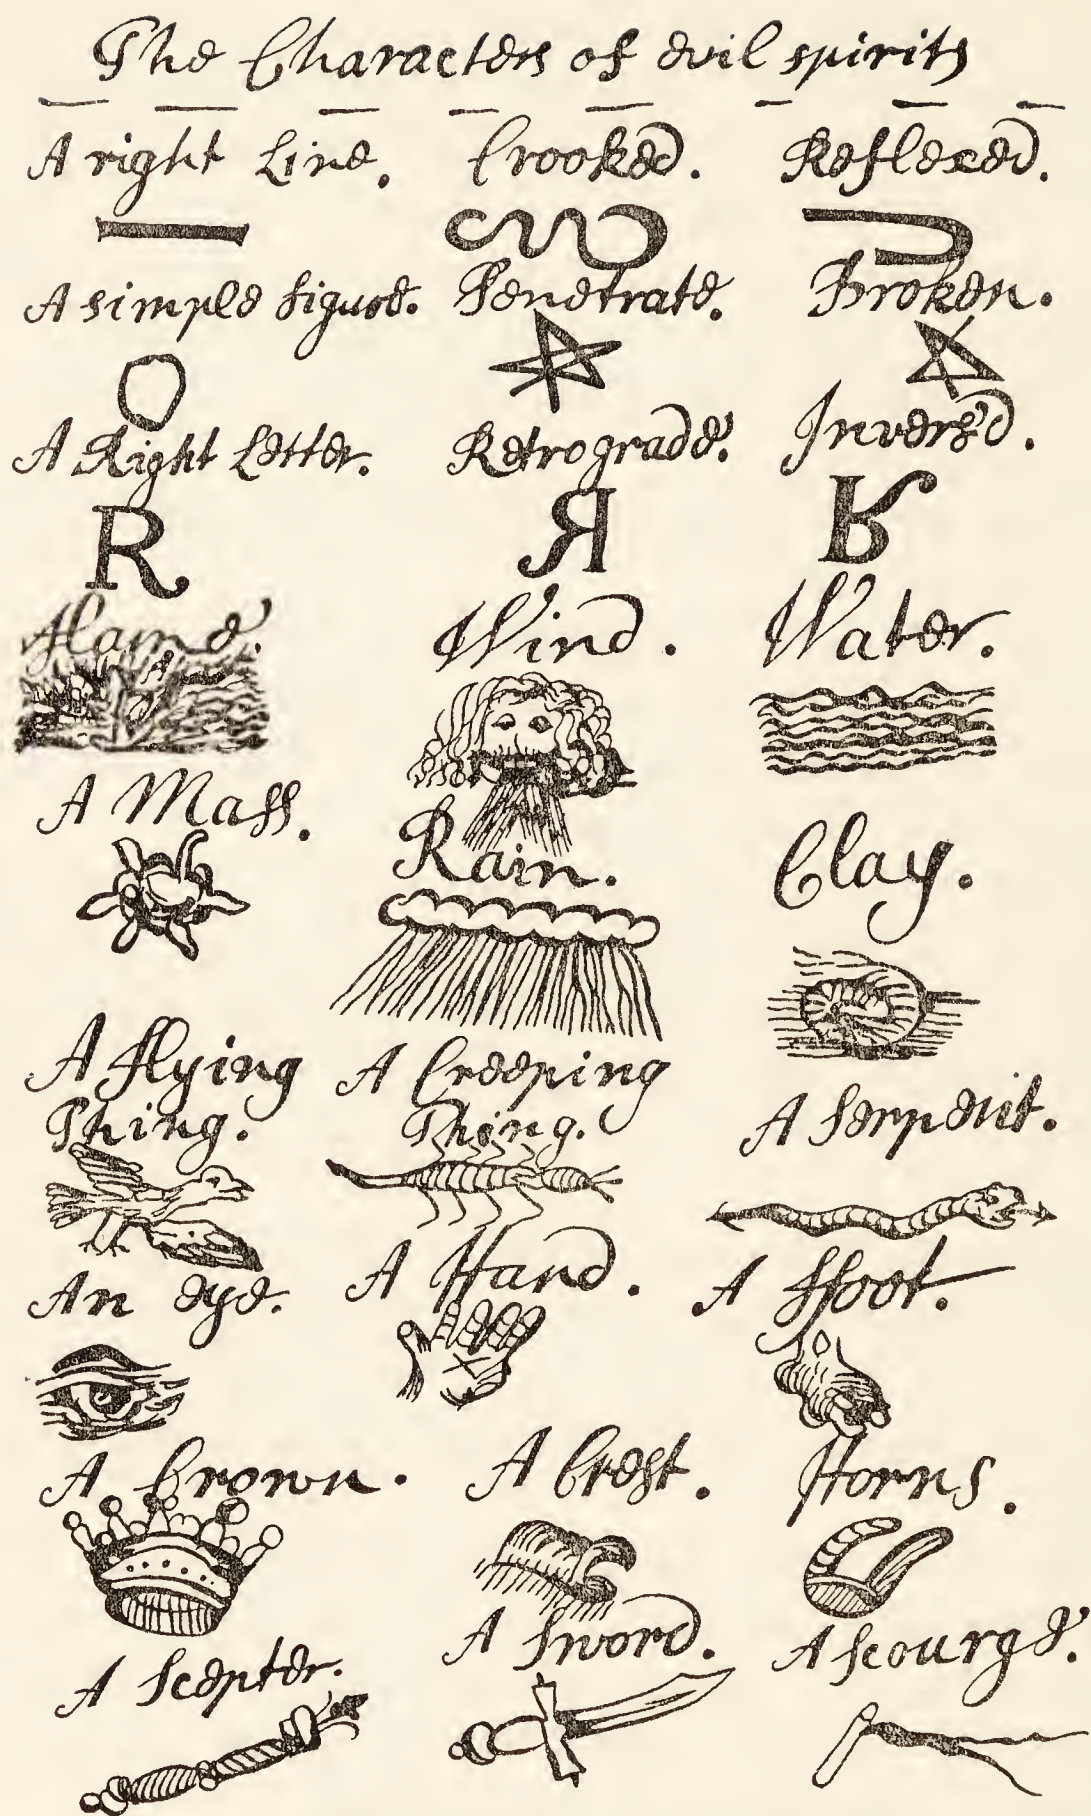 The Characters of evil spirits
A right Line. Crooked. Reflexed.
A simple figure. Penetrate. Broken.
A Right Letter. Retrograde. Invers'd.
R R R
Flame. Wind. Water.
A Mass. Rain. Clay.
A flying A Creeping
Thing. Thing. A serpent.
An eye. A Hand. A ffoot.
A Crown. A Crest. Horns.
A Scepter. A Sword. A Scourge.